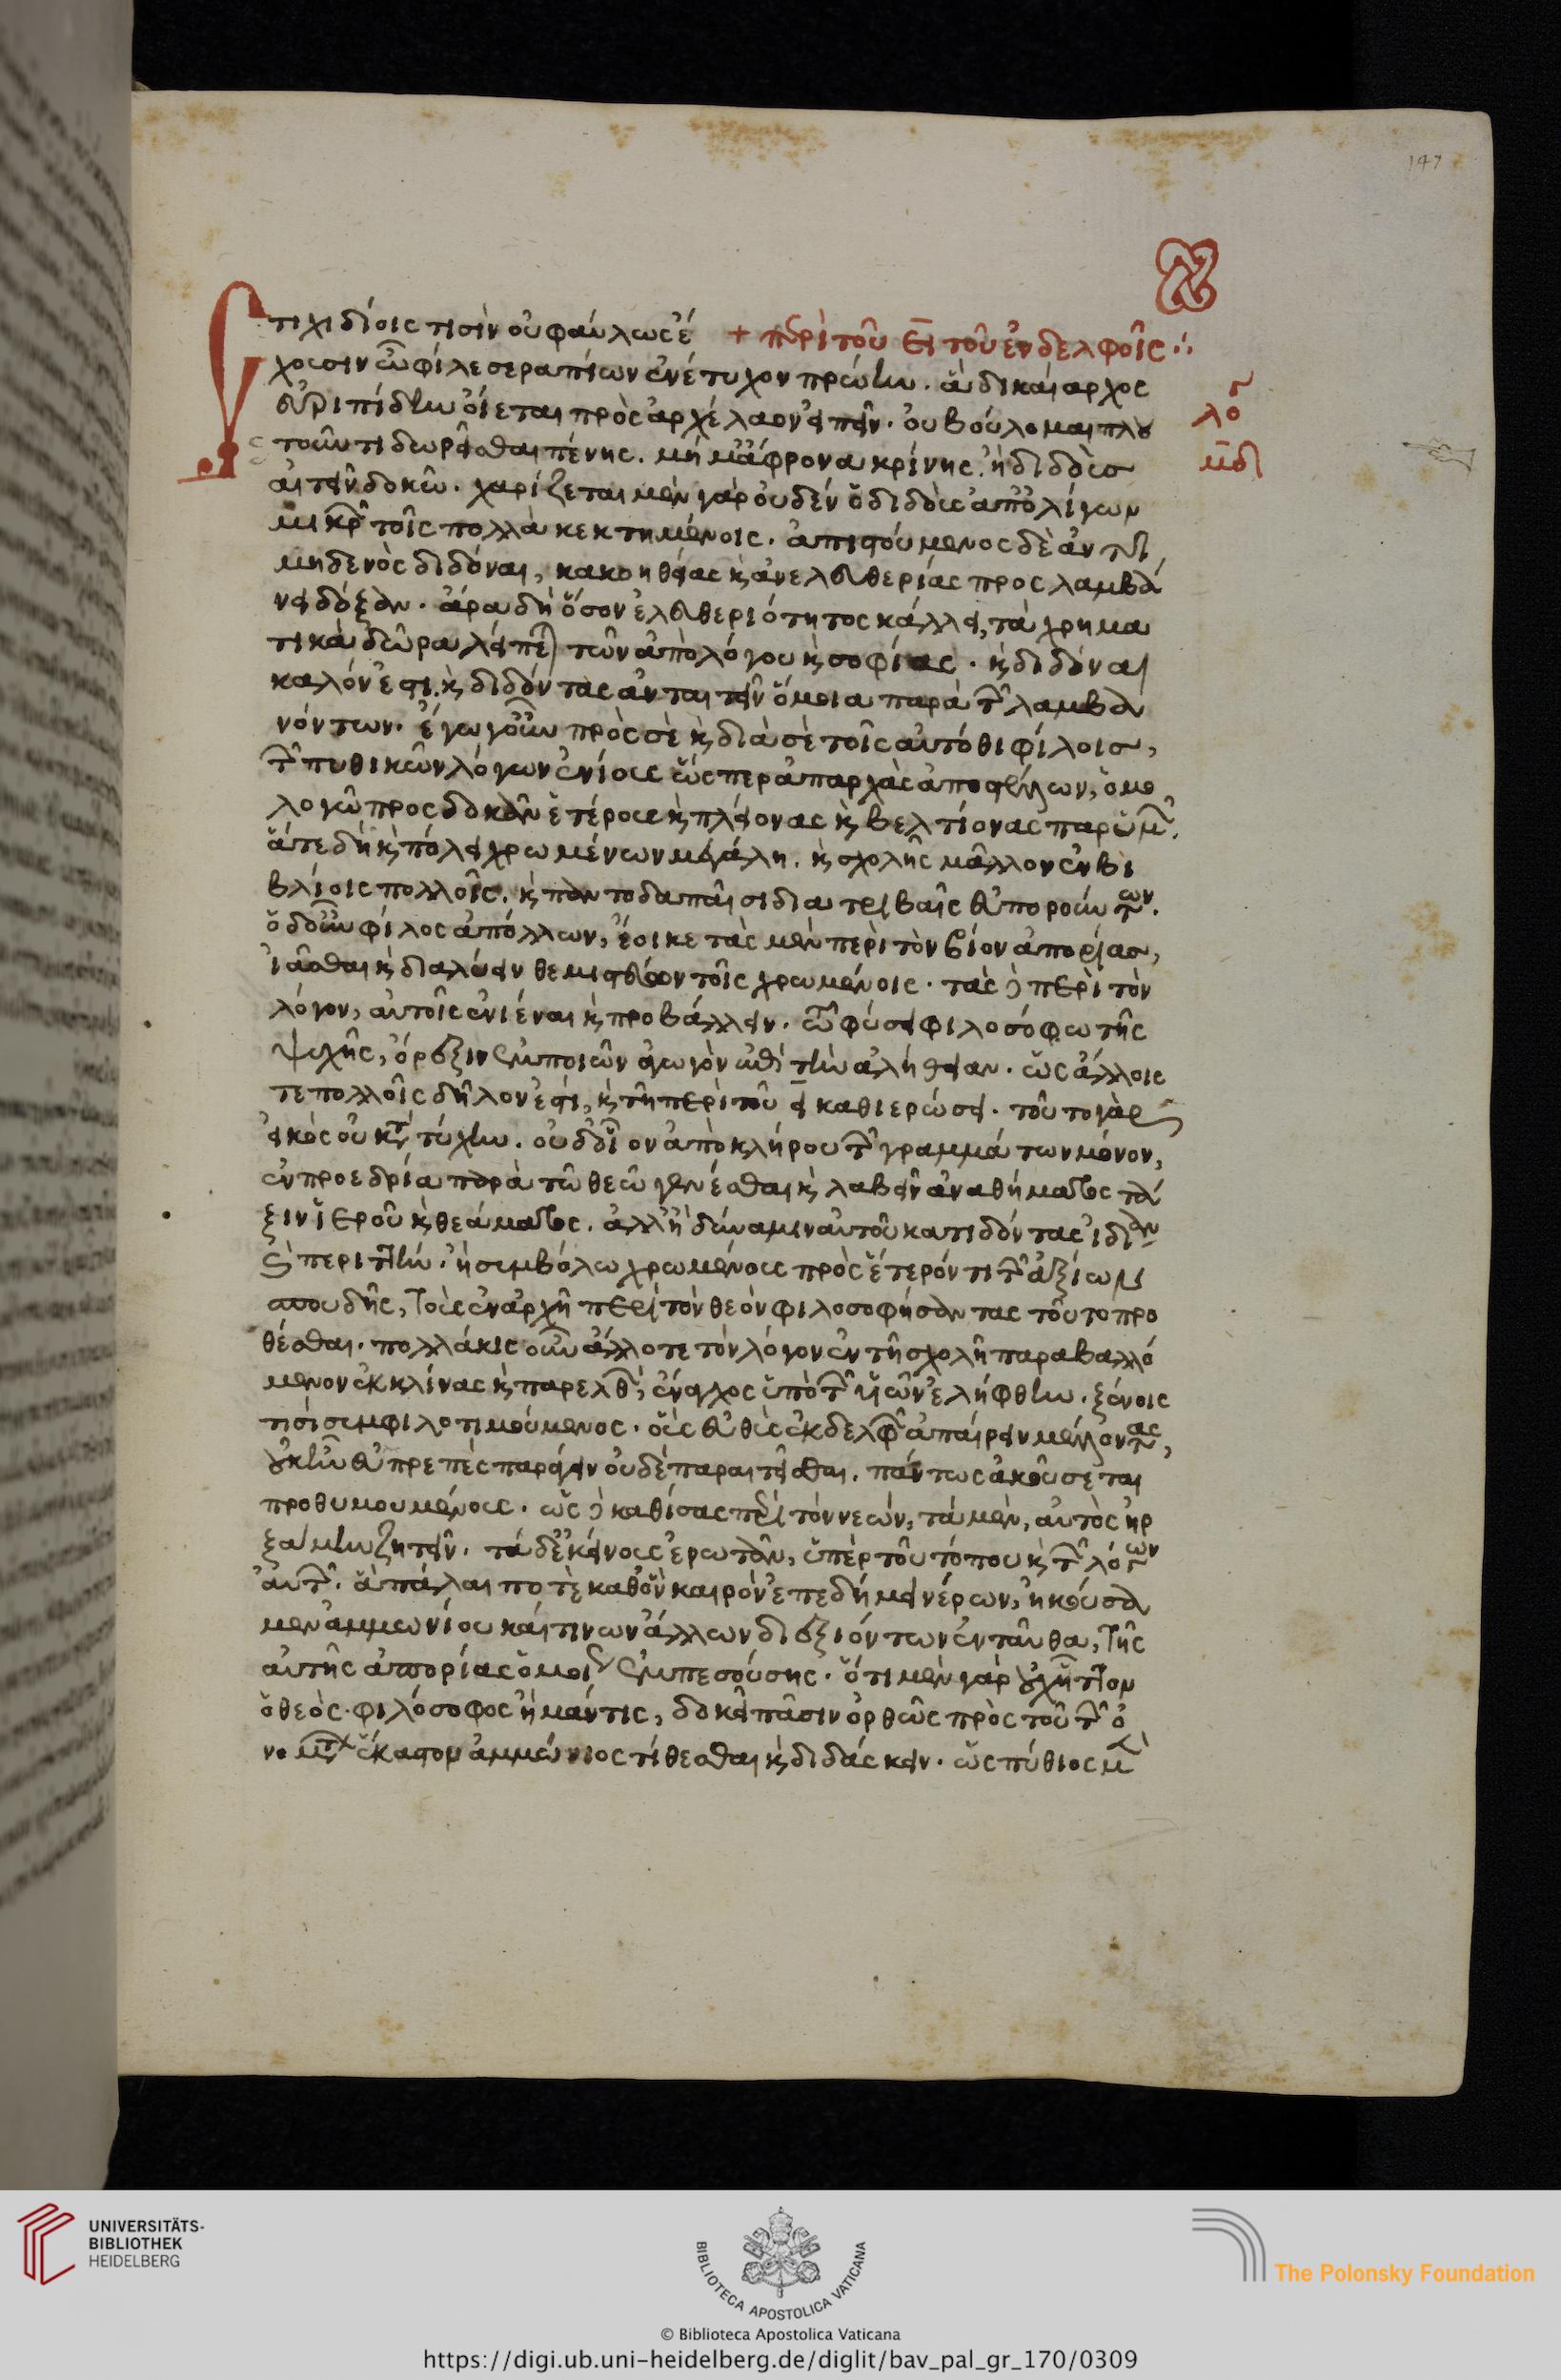 147
+ περὶ τοῦ ΕΙ τοῦ ἐν δελφοῖς ∴
Στιχιδίοις τισὶν οὐ φαύλως ἔ
χουσιν ὦ φίλε σεραπίων ἐνέτυχον πρώην. ἃ δικαίαρχος
εὐριπίδην οἴεται πρὸς ἀρχέλαον εἰπεῖν. οὐ βούλομαι πλου
τοῦντι δωρεῖσθαι πένης. μή μ' ἄφρονα κρίνης ἢ διδοὺς
αἰτεῖν δοκῶ. χαρίζεται μὲν γὰρ οὐδὲν ὁ διδοὺς ἀπ' ὀλίγων
μικρὰ τοῖς πολλὰ κεκτημένοις. ἀπιστούμενος δὲ ἀντὶ
μηδενὸς διδόναι, κακοηθείας κ̀ ἀνελευθερίας προσλαμβά
νει δόξαν. ὅρα δὴ ὅσον ἐλευθεριότητος κάλλει, τὰ χρημα
τικὰ δῶρα λείπεται τῶν ἀπὸ λόγου κ̀ σοφίας. κ̀ διδόναι
καλόν ἐστι. κ̀ διδόντας ἀνταιτεῖν ὅμοια παρὰ τῶν λαμβα
νόντων. ἐγὼ γοῦν πρὸς σὲ κ̀ διὰ σὲ τοῖς αὐτόθι φίλοις,
τῶν πυθικῶν λόγων ἐνίους ὥσπερ ἀπαρχὰς ἀποστέλλων, ὁμο
λογῶ προσδοκᾶν ἑτέρους κ̀ πλείονας κ̀ βελτίονας παρ' ὑμῶν.
ἅτε δὴ κ̀ πόλει χρωμένων μεγάλη. κ̀ σχολῆς μᾶλλον ἐν βι
βλίοις πολλοῖς. κ̀ παντοδαπαῖσι διατριβαῖς εὐπορούντων.
ὁ δ' οὖν φίλος ἀπόλλων, ἔοικε τὰς μὲν περὶ τὸν βίον ἀπορίας,
ἰᾶσθαι κ̀ διαλύειν θεμιστεύων τοῖς χρωμένοις. τὰς δὲ περὶ τὸν
λόγον, αὐτοῖς ἐνιέναι κ̀ προβάλλειν. τῶ φύσει φιλοσόφω τῆς
ψυχῆς, ὄρεξιν ἐμποιῶν ἀγωγὸν ἐπὶ τὴν ἀλήθειαν. ὡς ἄλλοις
τε πολλοῖς δῆλόν ἐστι, κ̀ τῆ περὶ τοῦ ει καθιερώσει. τοῦτο γὰρ
εἰκὸς οὐ κατὰ τύχην. οὐδ' οἷον ἀπὸ κλήρου τῶν γραμμάτων μόνον,
ἐν προεδρία παρὰ τῶ θεῶ γενέσθαι κ̀ λαβεῖν ἀναθήματος τά
ξιν ἱεροῦ κ̀ θεάματος. ἀλλ' ἢ δύναμιν αὐτοῦ κατιδόντας ἰδίαν
κ̀ περιττήν. ἢ συμβόλω χρωμένους πρὸς ἕτερόν τι τῶν ἀξίων
σπουδῆς, τοὺς ἐν ἀρχῆ περὶ τὸν θεὸν φιλοσοφήσαντας τοῦτο προ
θέσθαι. πολλάκις οὖν ἄλλοτε τὸν λόγον ἐν τῆ σχολῆ παραβαλλό
μενον ἐκκλίνας κ̀ παρελθών, ἔναγχος ὑπὸ τῶν υἱῶν ἐλήφθην. ξένοις
τισὶ συμφιλοτιμούμενος. οὓς εὐθὺς ἐκ δελφῶν ἀπαίρειν μέλλοντας,
οὐκ ἦν εὐπρεπὲς παράγειν οὐδὲ παραιτεῖσθαι. πάντως ἀκοῦσέ τι
προθυμουμένους. ὡς δὲ καθίσας περὶ τὸν νεών, τὰ μὲν, αὐτὸς ἠρ
ξάμην ζητεῖν. τὰ δ' ἐκείνους ἐρωτᾶν, ὑπὲρ τοῦ τόπου κ̀ τῶν λόγων
αὐτῶν. ἃ πάλαι ποτὲ καθ' ὃν καιρὸν ἐπεδήμει νέρων, ἠκούσα
μεν ἀμμωνίου καί τινων ἄλλων διεξιόντων ἐνταῦθα, τῆς
αὐτῆς ἀπορίας ὁμοίως ἐμπεσούσης. ὅτι μὲν γὰρ οὐχ ἧττον
ὁ θεὸς φιλόσοφος ἢ μάντις, δοκεῖ πᾶσιν ὀρθῶς πρὸς τούτων ὀ
νομάτων ἕκαστον ἀμμώνιος τίθεσθαι κ̀ διδάσκειν. ὡς πύθιος μέν
UNIVERSITÄTS-
BIBLIOTHEK
HEIDELBERG
BIBLIOTECA APOSTOLICA VATICANA
The Polonsky Foundation
© Biblioteca Apostolica Vaticana
https://digi.ub.uni-heidelberg.de/diglit/bav_pal_gr_170/0309